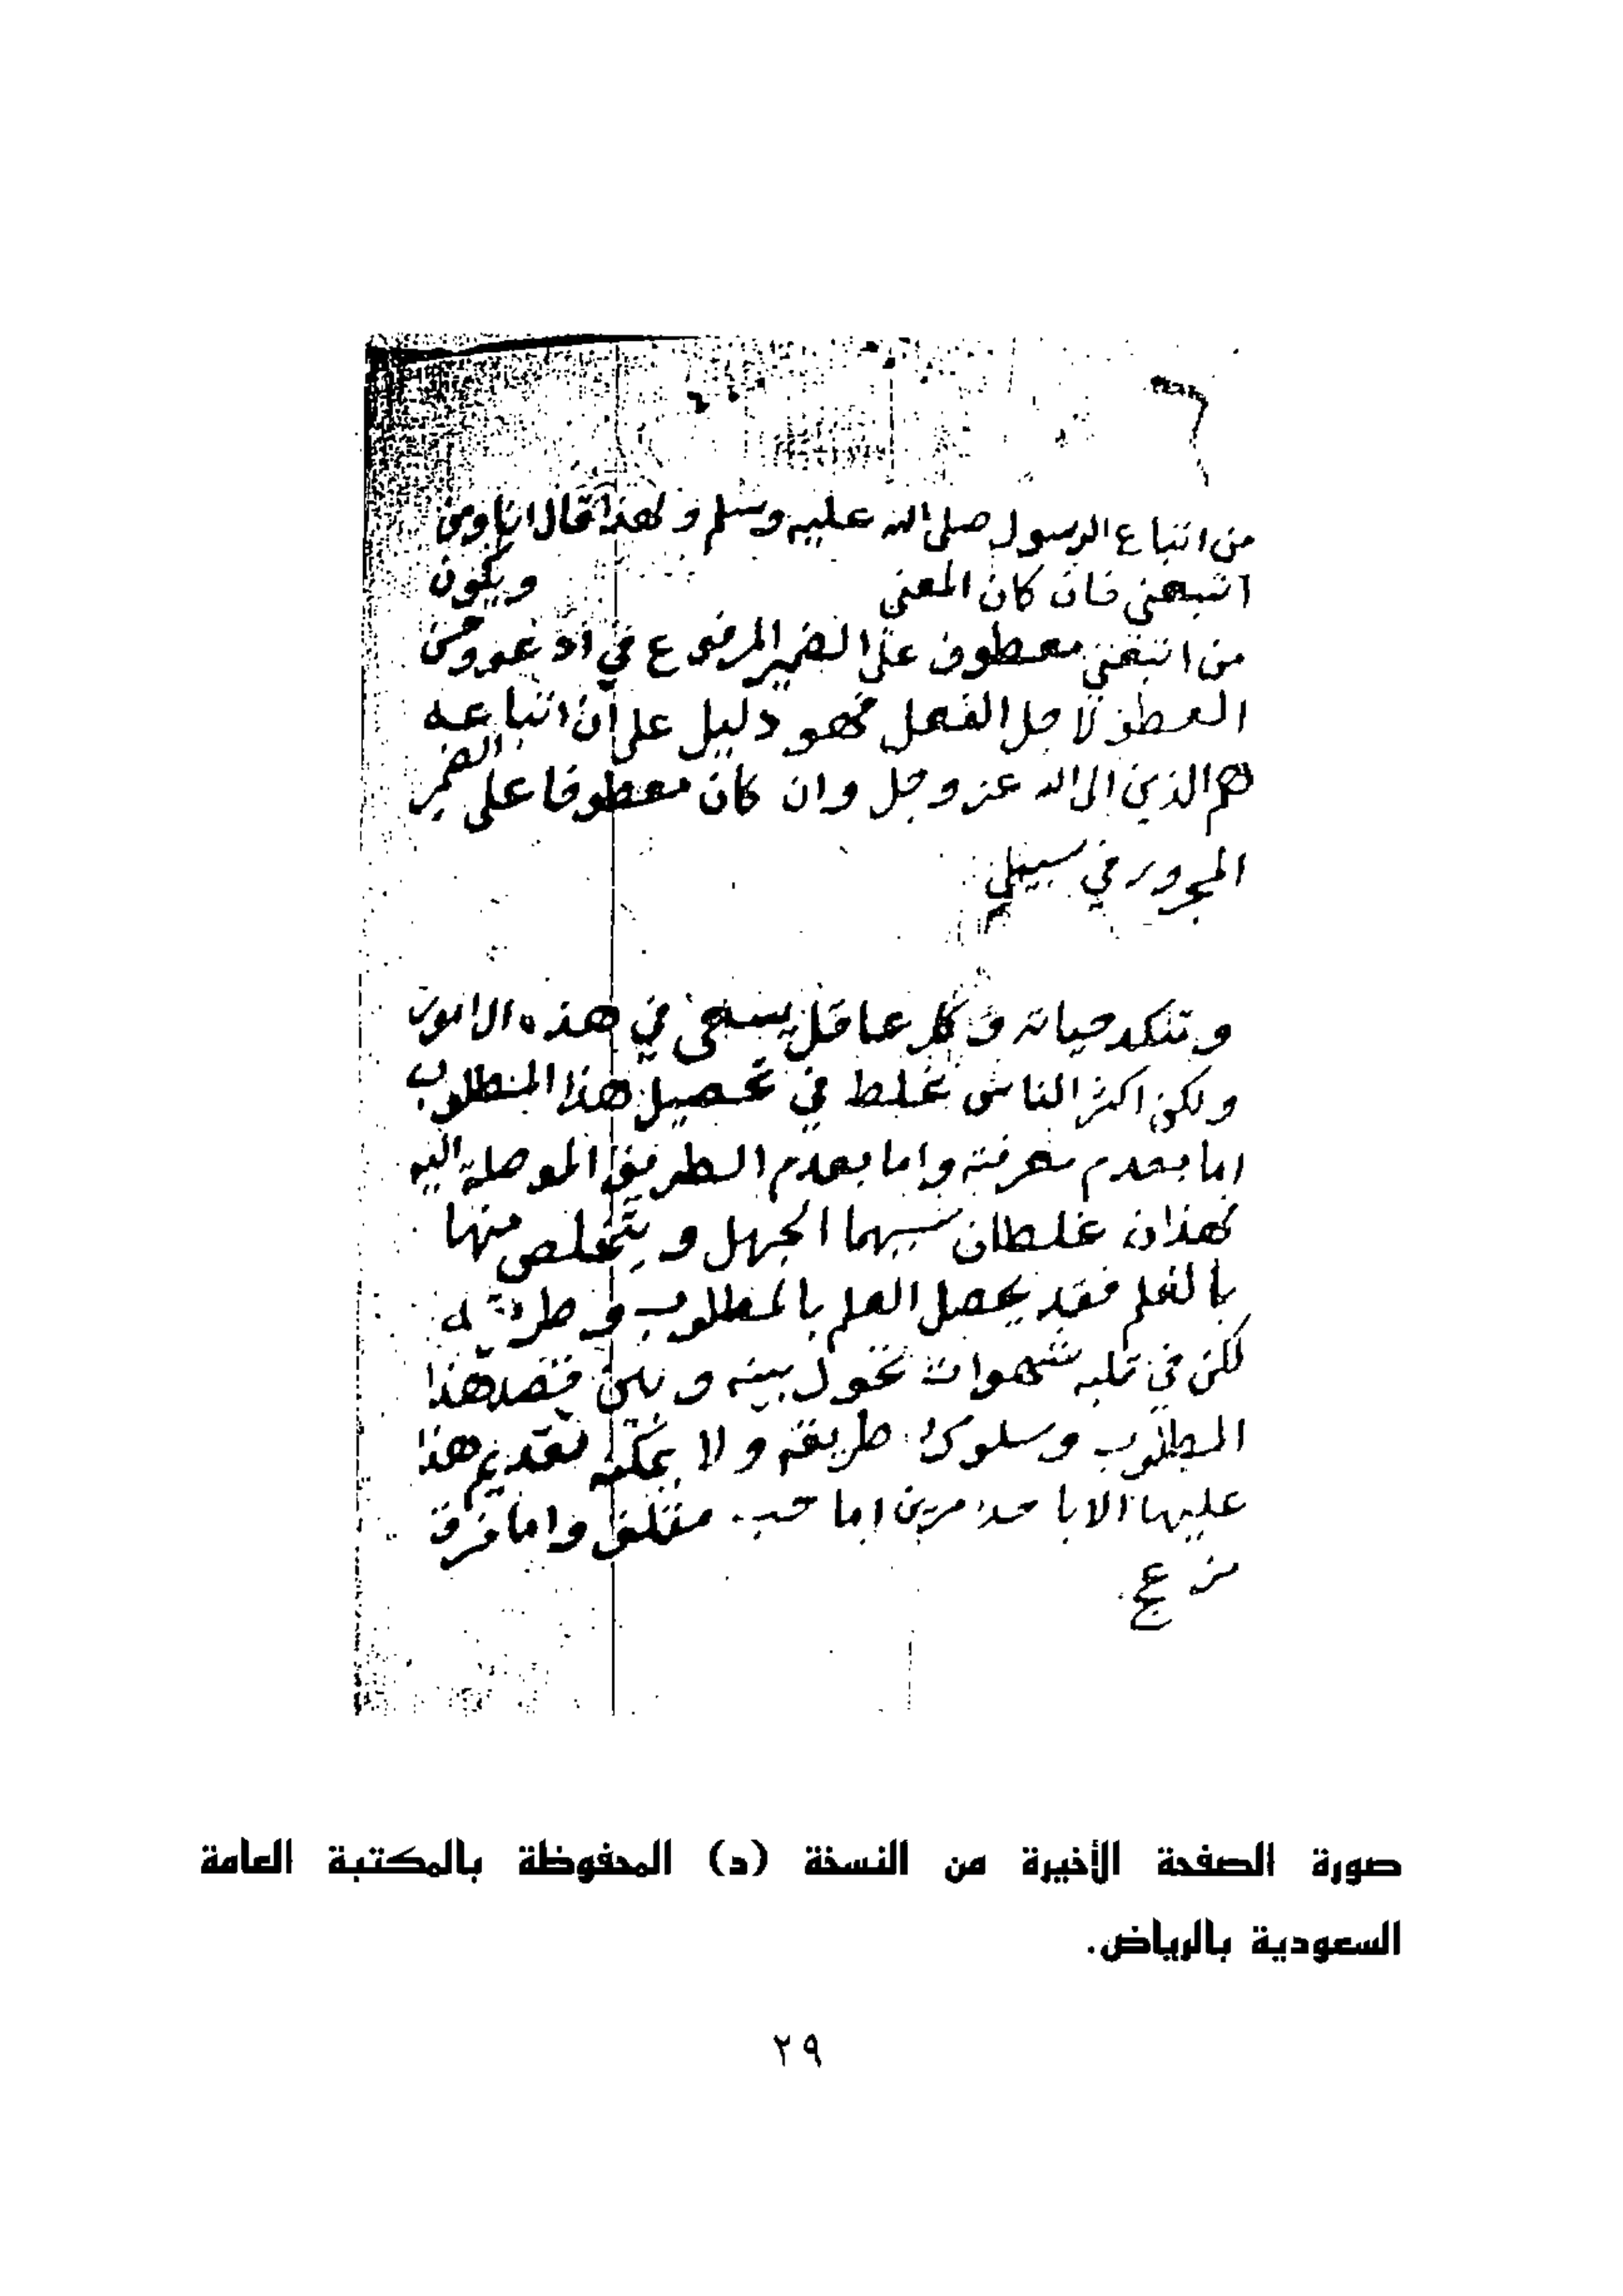 من اتباع الرسول صلى الله عليه وسلم ولهذا قال انا ومن
اتبعني فان كان المعنى ويكون
من اتبعني معطوف على الضمير المرفوع في ادعو وحسن
العطف لاجل الفصل فهو دليل على ان اتباعه
هم الذين الى الله عز وجل وان كان معطوفا على الضمير
المجرور في سبيلي
وتنكد حياته وكل عاقل يسعى في هذه الامور
ولكن اكثر الناس غلط في تحصيل هذا المطلوب
اما بعدم معرفته واما بعدم الطريق الموصلة اليه
فهذان غلطان سببهما الجهل ويتخلص منها
بالعلم فقد يحصل العلم بالمطلوب و طريقه
لكن في قلبه شهوات تحول بينه وبين قصد هذا
المطلوب وسلوك طريقه ولا يمكنه تقديم هذا
عليها الا باحد امرين اما حب مقلق واما فرق
مزعج
صورة الصفحة الأخيرة من النسخة (د) المحفوظة بالمكتبة العامة
السعودية بالرياض.
٢٩